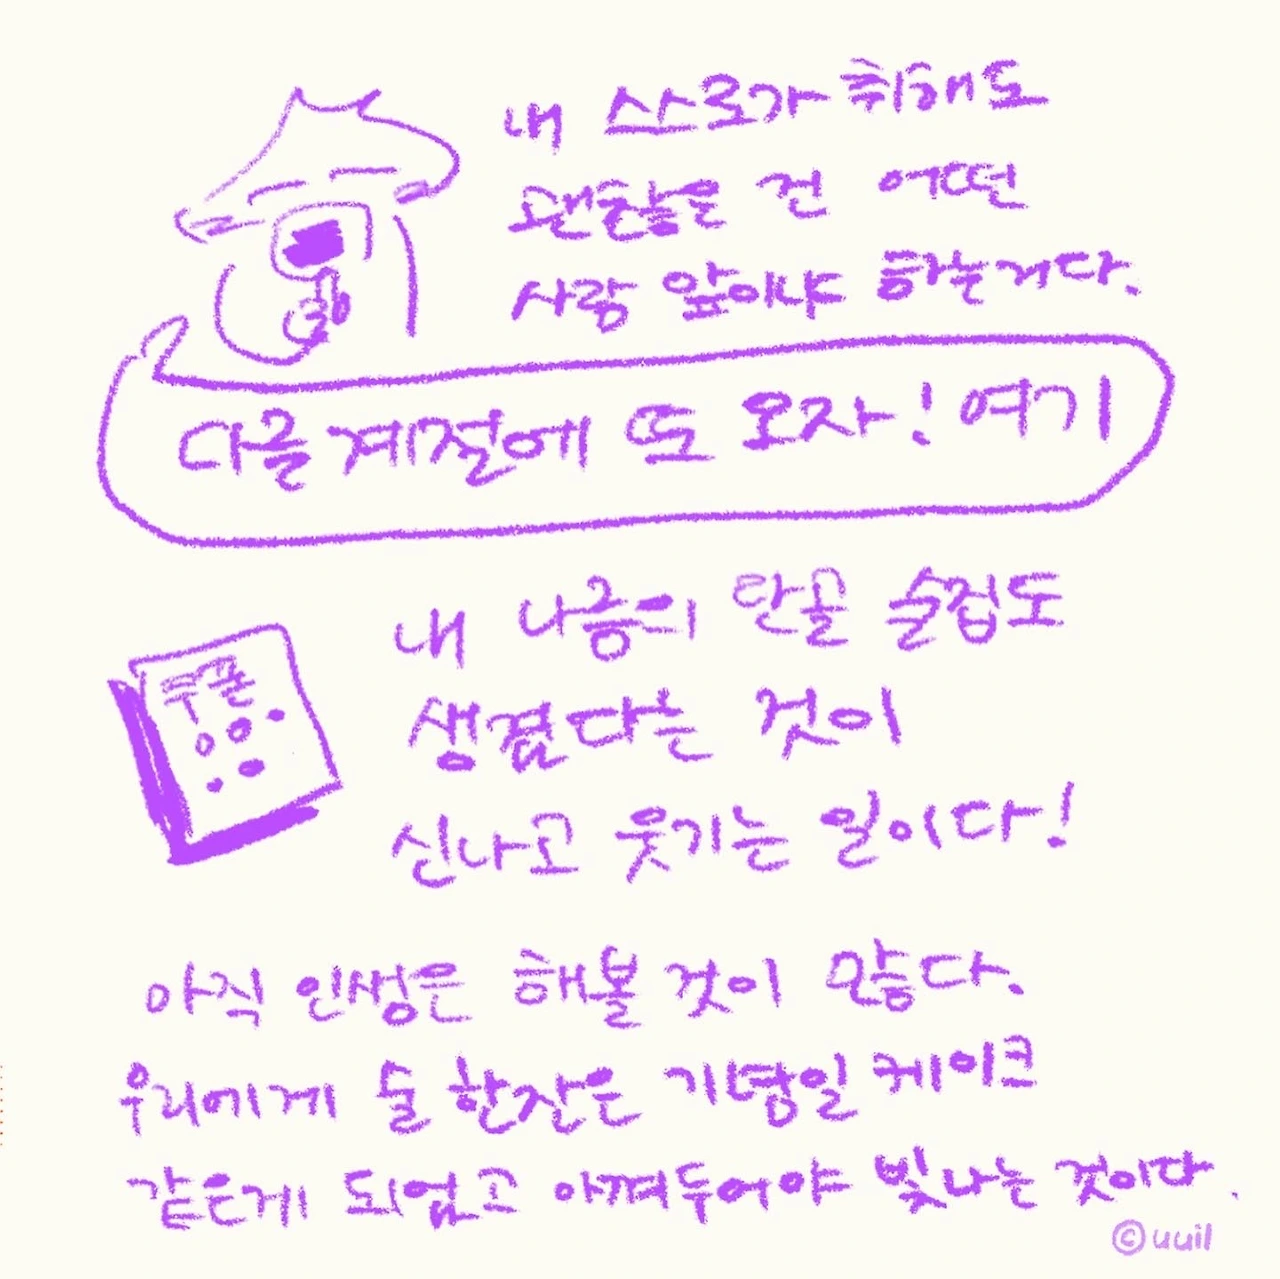 내 스스로가 취해도
괜찮은 건 어떤
사람 앞이냐 하는거다.
다음 계절에 또 오자! 여기
내 나름의 단골 술집도
생겼다는 것이
쿠폰
신나고 웃기는 일이다!
아직 인생은 해볼 것이 많다.
우리에게 술 한잔은 기념일 케이크
같은게 되었고 아껴두어야 빛나는 것이다.
©uuil